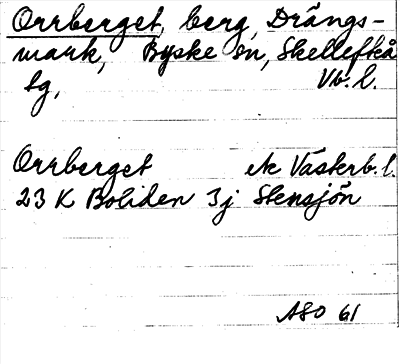 Orrberget, berg, Drängs-
mark, Byske sn, Skellefteå
tg, Vb. l.
Orrberget ek Västerb. l.
23 K Boliden 3j Stensjön
ASO 61